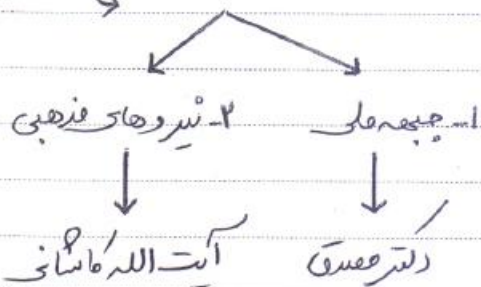 ۱- جبهه ملی ۲- نیروهای مذهبی
دکتر مصدق آیت الله کاشانی